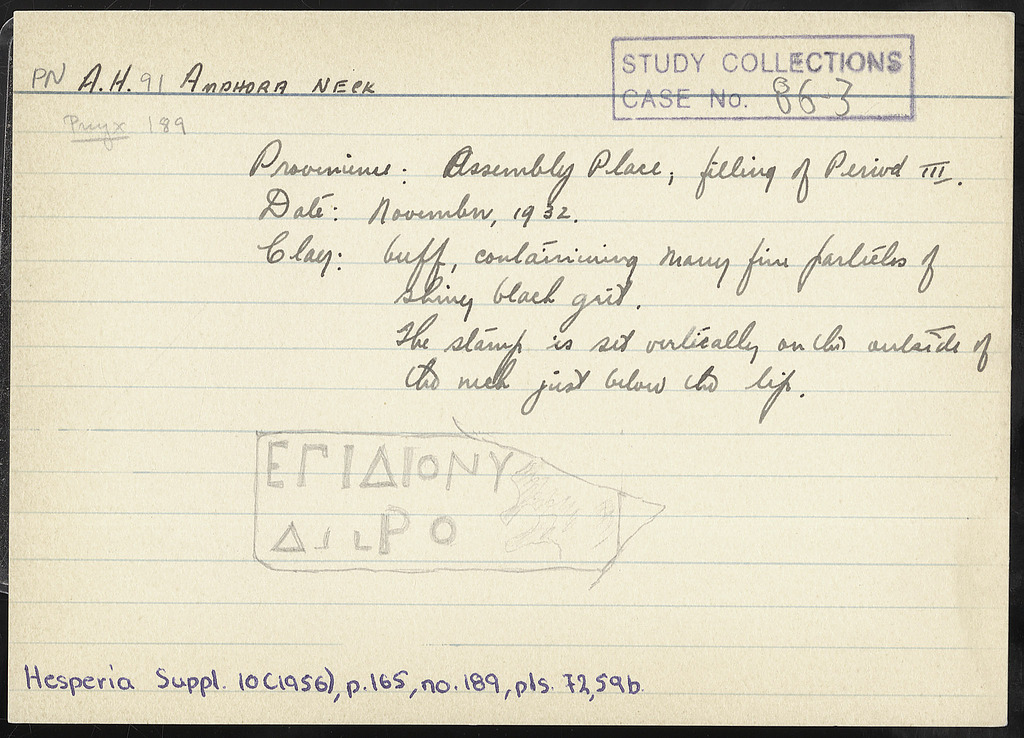 PN A.H. 91 AMPHORA NECK
STUDY COLLECTIONS
CASE No. 86-3
Pnyx 189
Provenience: Assembly Place, filling of Period III.
Date: November, 1932.
Clay: buff, containining many fine particles of
shiny black grit.
The stamp is set vertically on the outside of
the neck just below the lip.
ΕΓΙΔΙΟΝΥ
Δ Ρ Ο
Hesperia Suppl. 10(1956), p.165, no.189, pls. 72,59b.